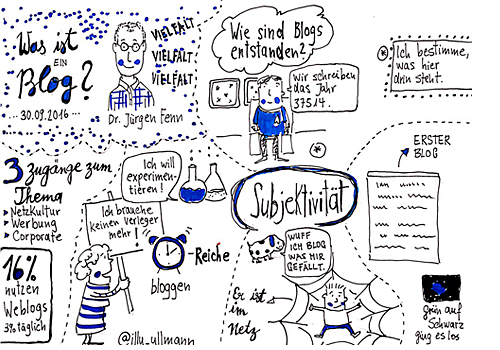 Was ist
EIN
Blog?
--- 30.09.2016 ---
VIELFALT
VIELFALT
VIELFALT
Dr. Jürgen Fenn
Wie sind Blogs
entstanden?
Wir schreiben
das Jahr
375.14.
*
* Ich bestimme,
was hier
drin steht.
3 Zugänge zum
Thema
Netzkultur
Werbung
Corporate
16%
nutzen
Weblogs
3% täglich
Ich will
experimen-
tieren!
Ich brauche
keinen Verleger
mehr!
-Reiche
bloggen
@illu_ullmann
Subjektivität
WUFF
ICH BLOG
WAS MIR
GEFÄLLT.
Er ist
im
Netz
ERSTER
BLOG
grün auf
Schwarz
ging es los